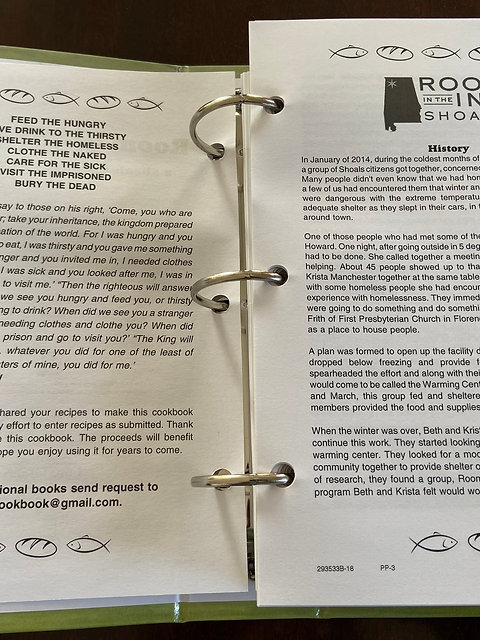 FEED THE HUNGRY
VE DRINK TO THE THIRSTY
SHELTER THE HOMELESS
CLOTHE THE NAKED
CARE FOR THE SICK
VISIT THE IMPRISONED
BURY THE DEAD
say to those on his right, ‘Come, you who are
r; take your inheritance, the kingdom prepared
ation of the world. For I was hungry and you
o eat, I was thirsty and you gave me something
nger and you invited me in, I needed clothes
I was sick and you looked after me, I was in
to visit me.’ “Then the righteous will answer
we see you hungry and feed you, or thirsty
ng to drink? When did we see you a stranger
needing clothes and clothe you? When did
prison and go to visit you?’ “The King will
whatever you did for one of the least of
ters of mine, you did for me.’
hared your recipes to make this cookbook
y effort to enter recipes as submitted. Thank
e this cookbook. The proceeds will benefit
ope you enjoy using it for years to come.
ional books send request to
ookbook@gmail.com.
ROO
IN THE IN
SHOA
History
In January of 2014, during the coldest months of
a group of Shoals citizens got together, concerne
Many people didn't even know that we had hom
a few of us had encountered them that winter an
were dangerous with the extreme temperatu
adequate shelter as they slept in their cars, in
around town.
One of those people who had met some of the
Howard. One night, after going outside in 5 deg
had to be done. She called together a meetin
helping. About 45 people showed up to tha
Krista Manchester together at the same table
with some homeless people she had encoun
experience with homelessness. They immed
were going to do something and do somethi
Frith of First Presbyterian Church in Florenc
as a place to house people.
A plan was formed to open up the facility d
dropped below freezing and provide f
spearheaded the effort and along with thei
would come to be called the Warming Cent
and March, this group fed and sheltere
members provided the food and supplies
When the winter was over, Beth and Krist
continue this work. They started looking
warming center. They looked for a mod
community together to provide shelter o
of research, they found a group, Room
program Beth and Krista felt would wo
293533B-18 PP-3